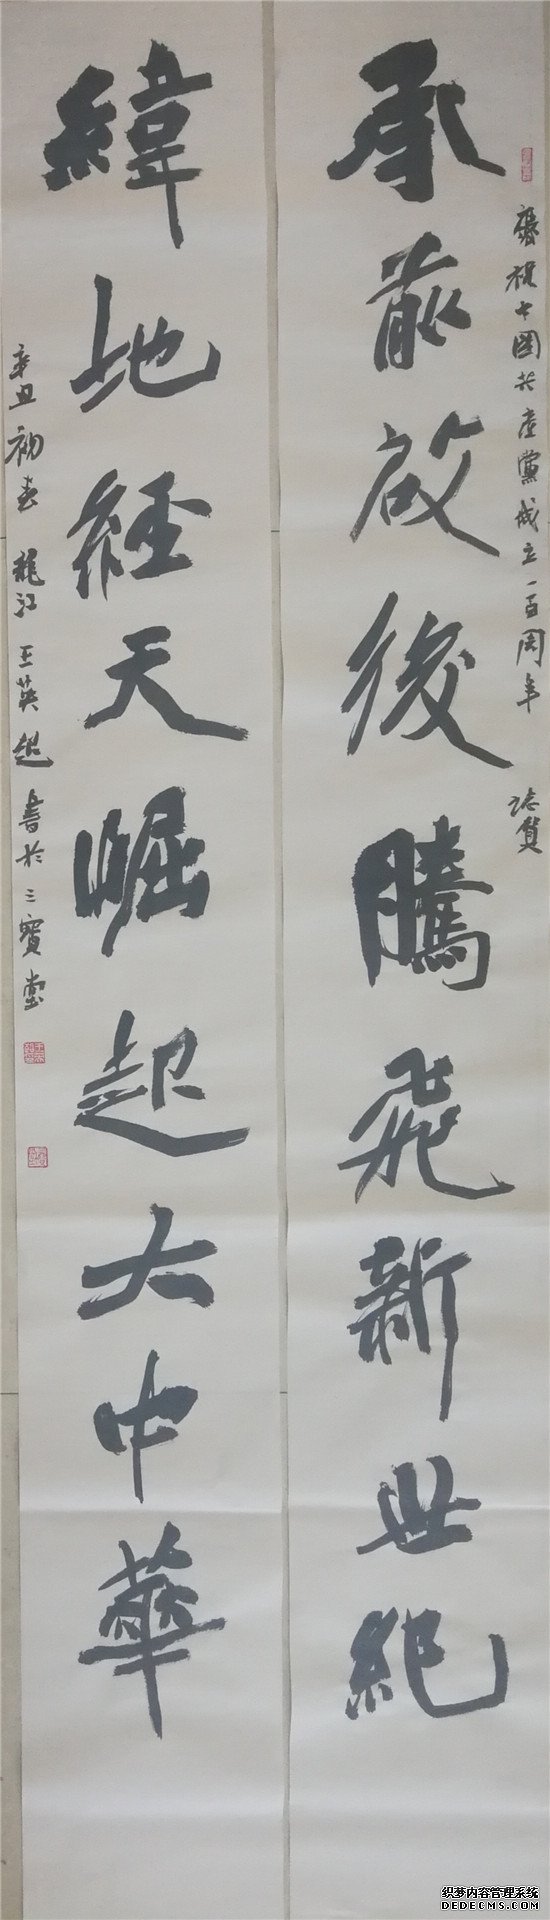 承前啟後騰飛新世紀
慶祝中國共產黨成立一百周年 誌賀
緯地經天崛起大中華
辛丑初春 龍江王英超書於三寶堂
织梦内容管理系统
DEDECMS.COM